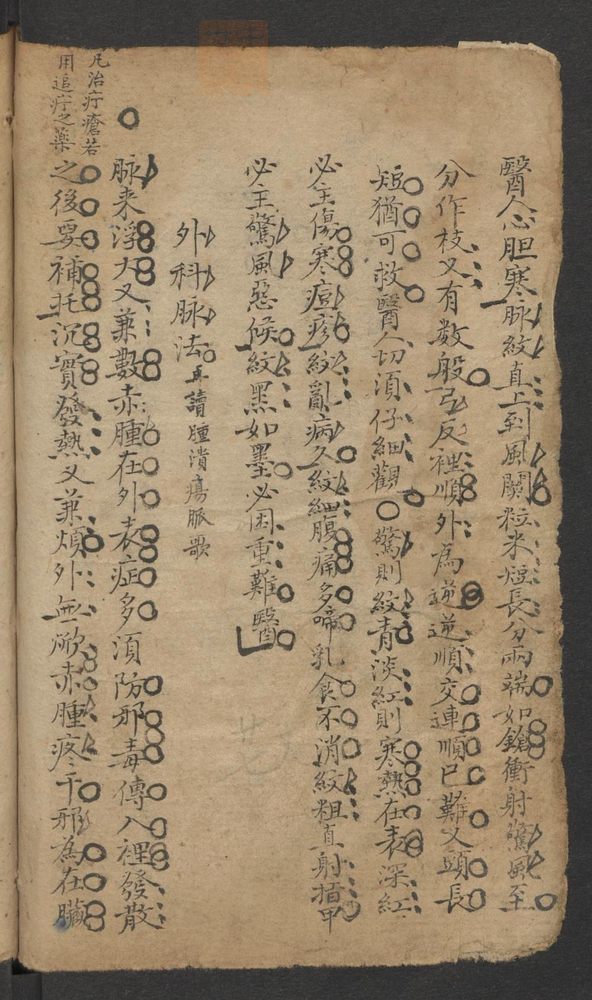 醫人心胆寒脉紋直上到風關粒米短長分兩端如鎗衝射驚風至
分作枝叉有数般弓反裡順外為逆逆順交連順已難叉頭長
短猶可救醫人切須仔細觀〇驚則紋青淡紅則寒熱在表深紅
必主傷寒痘疹紋亂病久紋細腹痛多啼乳食不消紋粗直射指甲
必主驚風惡候紋黑如墨必困重難醫
外科脉法再讀腫潰瘍脈歌
脉来浮大又兼數赤腫在外表症多須防邪毒傳入裡發散
之後要補托沉實發熱又兼煩外無焮赤腫疼干邪為在臟
凡治疔瘡若
用追疔之藥